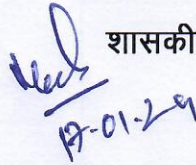 शासकी
17-01-29